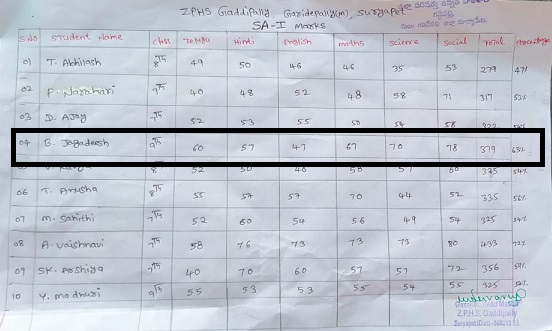 ZPHS Gaddipally, Garidepally(m), Suryapet
SA-I Marks
S.No Student Name Class Telugu Hindi English maths Science Social Total Percentage
01 T. Abhilash 8th 49 50 46 46 35 53 279 47%
02 P. Narahari 9th 40 48 52 48 58 71 317 53%
03 D. Ajay 7th 52 53 55 50 54 58 322
04 B. Jagadeesh 9th 60 57 47 67 70 78 379 63%
52 50 51 60
06 T. Anusha 8th 55 57 57 70 44 52 335 56%
07 M. Sahithi 7th 52 60 54 56 49 54 325 54%
08 A. Vaishnavi 7th 58 76 73 73 73 80 433 72%
09 SK. Arshiya 7th 40 70 60 57 57 72 356 59%
10 Y. Madhuri 9th 55 53 53 55 54 55 325
Head Master
Z.P.H.S. Gaddipally